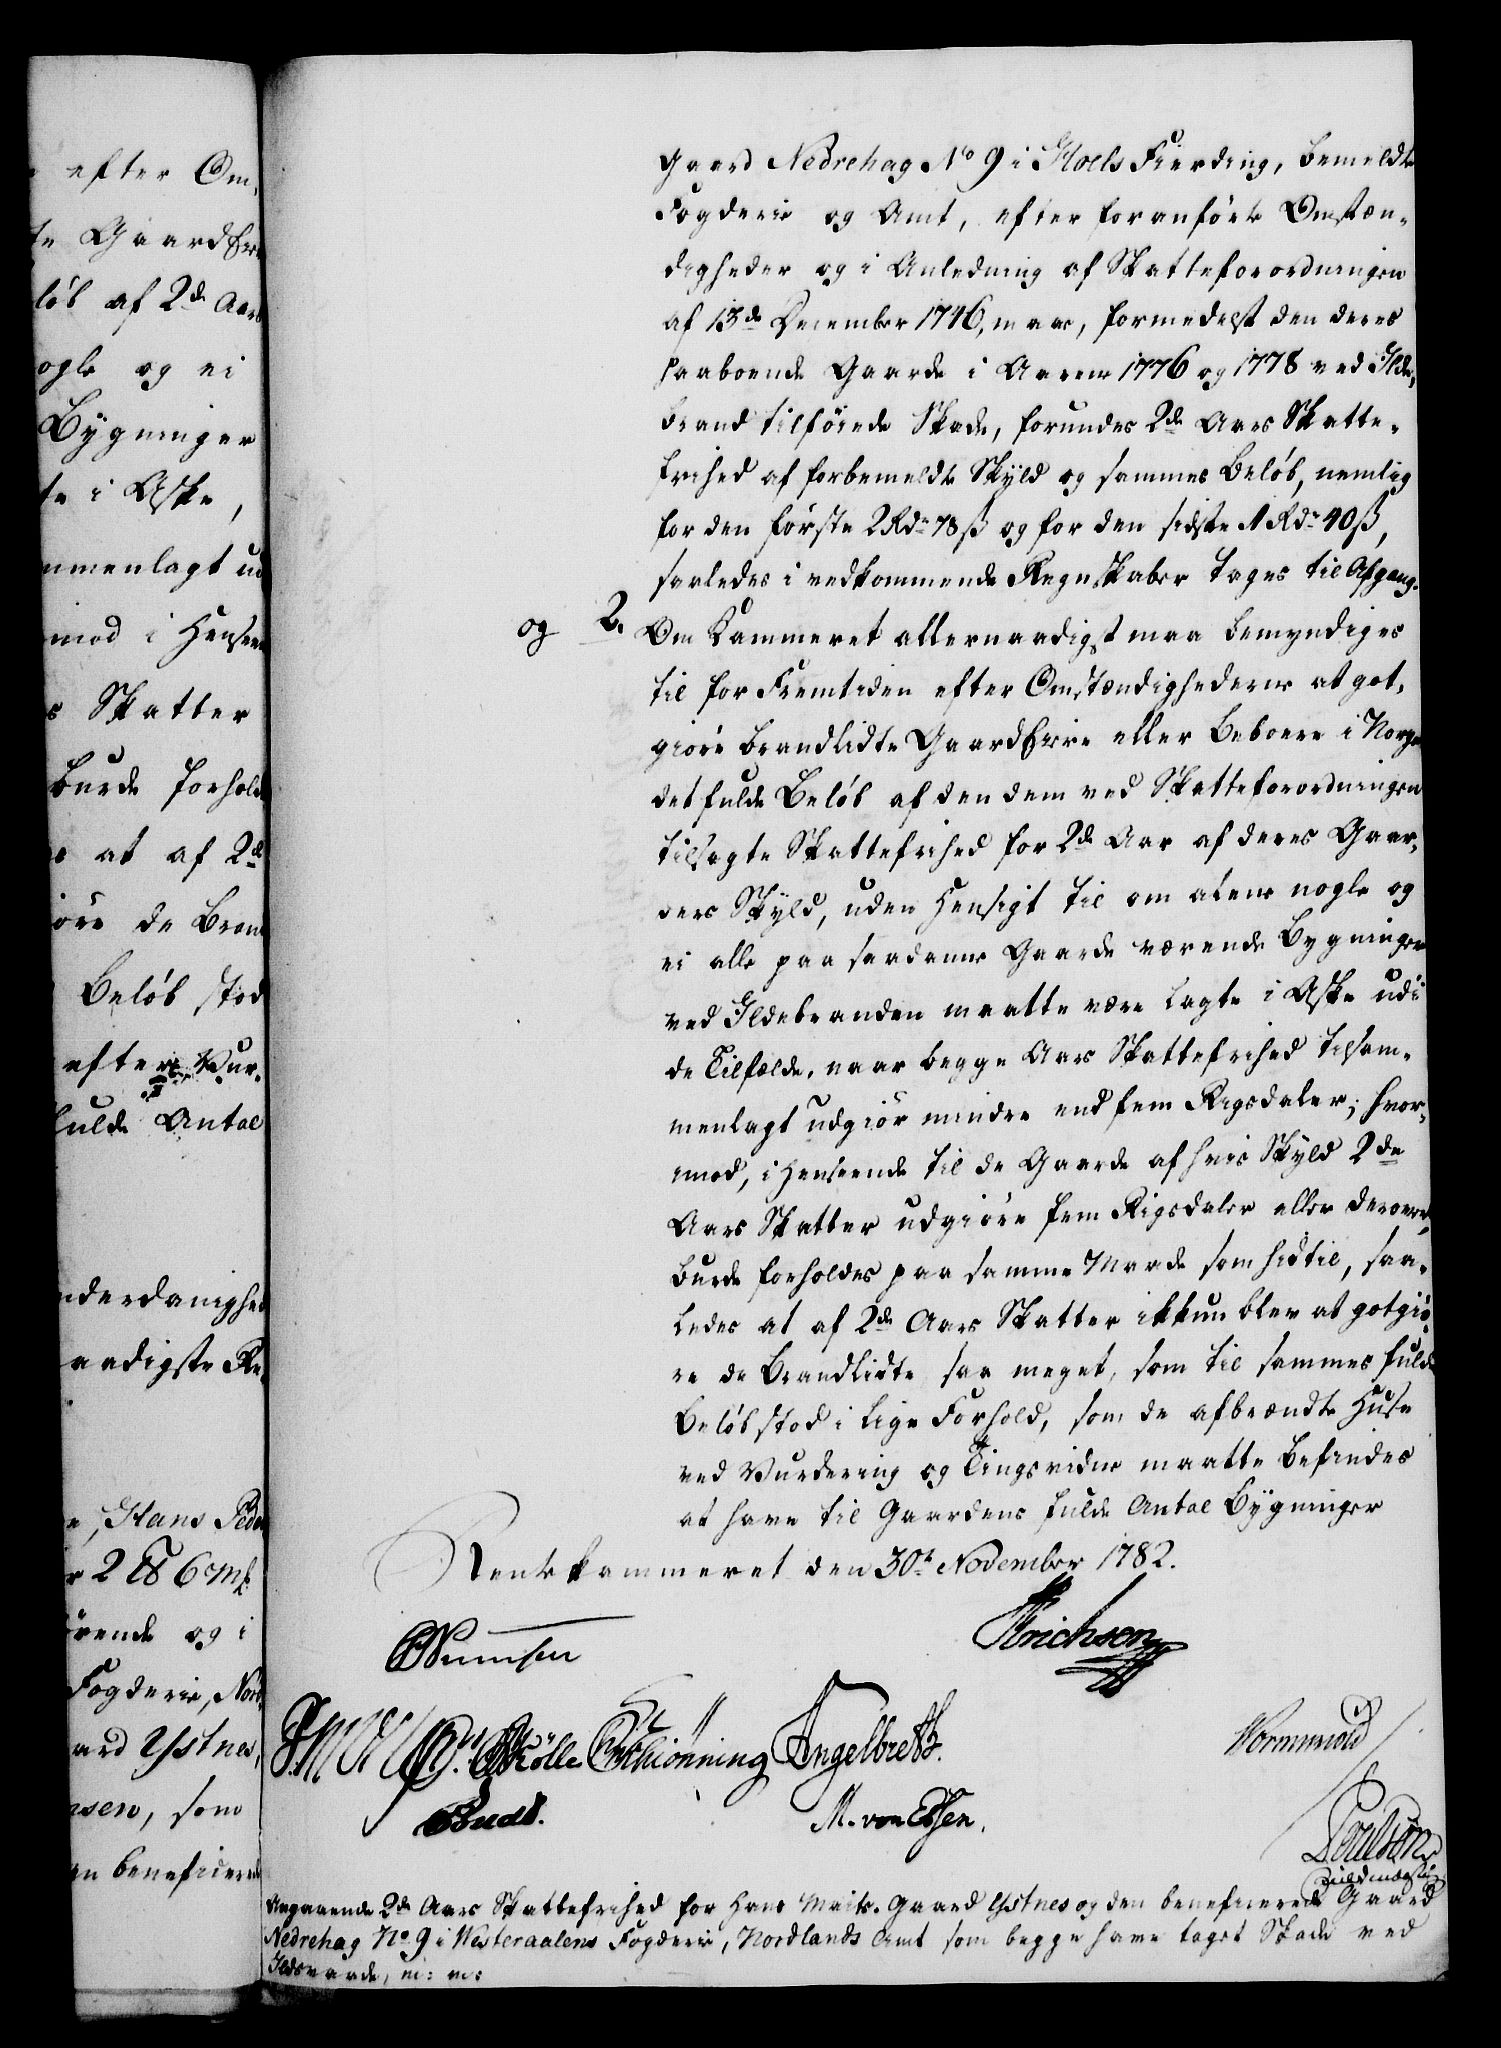 efter Om-
te Gaard Erre
løb af 2de Aars
ogle og ei
Bygninger
te i Aske,
mmenlagt ud
mod i Hensee
s Skatter
burde forhold
at af 2de
iøre de Bran
Beløb stod
efter Vur-
fulde Antal
nderdanighed
aadigste Re-
e, Hans Peder
r 2 6 mk
ørende og i
Fogderie, Nord-
aard Ystnes,
nsen, som
en beneficerede
Gaard Nedrehag No 9 i Hoels Fierding, bemeldte
Fogderie og Amt, efter foranførte Omstæn-
digheder og i Anledning af Skatteforordningen
af 13de December 1746, maae, formedelst den deres
paaboende Gaarde i Aarene 1776 og 1778 ved Ilde-
brand tilføiede Skade, forundes 2de Aars Skatte-
frihed af forbemeldte Skyld og sammes Beløb, nemlig
for den første 2 Rdr 78 ß og for den sidste 1 Rdr 40 ß,
saaledes i vedkommende Regnskaber tages til Afgang.
og 2. Om Kammeret allernaadigst maa bemyndiges
til for Fremtiden efter Omstændighederne at got-
giøre brandlidte Gaard Eiere eller Beboere i Norge
det fulde Beløb af den dem ved Skatteforordningen
tilsagte Skattefrihed for 2de Aar af deres Gaar-
ders Skyld, uden Hensigt til om alene nogle og
ei alle paa saadanne Gaarde værende Bygninger
ved Ildebranden maatte være lagte i Aske udi
de Tilfælde, naar begge Aars Skattefrihed tilsam-
menlagt udgiør mindre end fem Rigsdaler; hvor-
imod, i Henseende til de Gaarde af hvis Skyld 2de
Aars Skatter udgiøre fem Rigsdaler eller derover,
burde forholdes paa samme Maade som hidtil, saa-
ledes at af 2de Aars Skatter ikkun blev at gotgiø-
re de Brandlidte saa meget, som til sammes fulde
Beløb stod i lige Forhold, som de afbrændte Huse
ved Vurdering og Tingsvidne maatte befindes
at have til Gaardens fulde Antal Bygninger
Rentekammeret den 30te November 1782.
CWumsen Erichsen
Mølle Tschiønning Engelbreth. Wormwold
Budt. M. von Essen. Poulson
Fuldmægtig
Angaaende 2de Aars Skattefrihed for Hans Maits. Gaard Ystnes og den beneficerede Gaard
Nedrehag No. 9 i Westeraalens Fogderie, Nordlands Amt som begge have taget Skade ved
Ildsvaade, m: m: